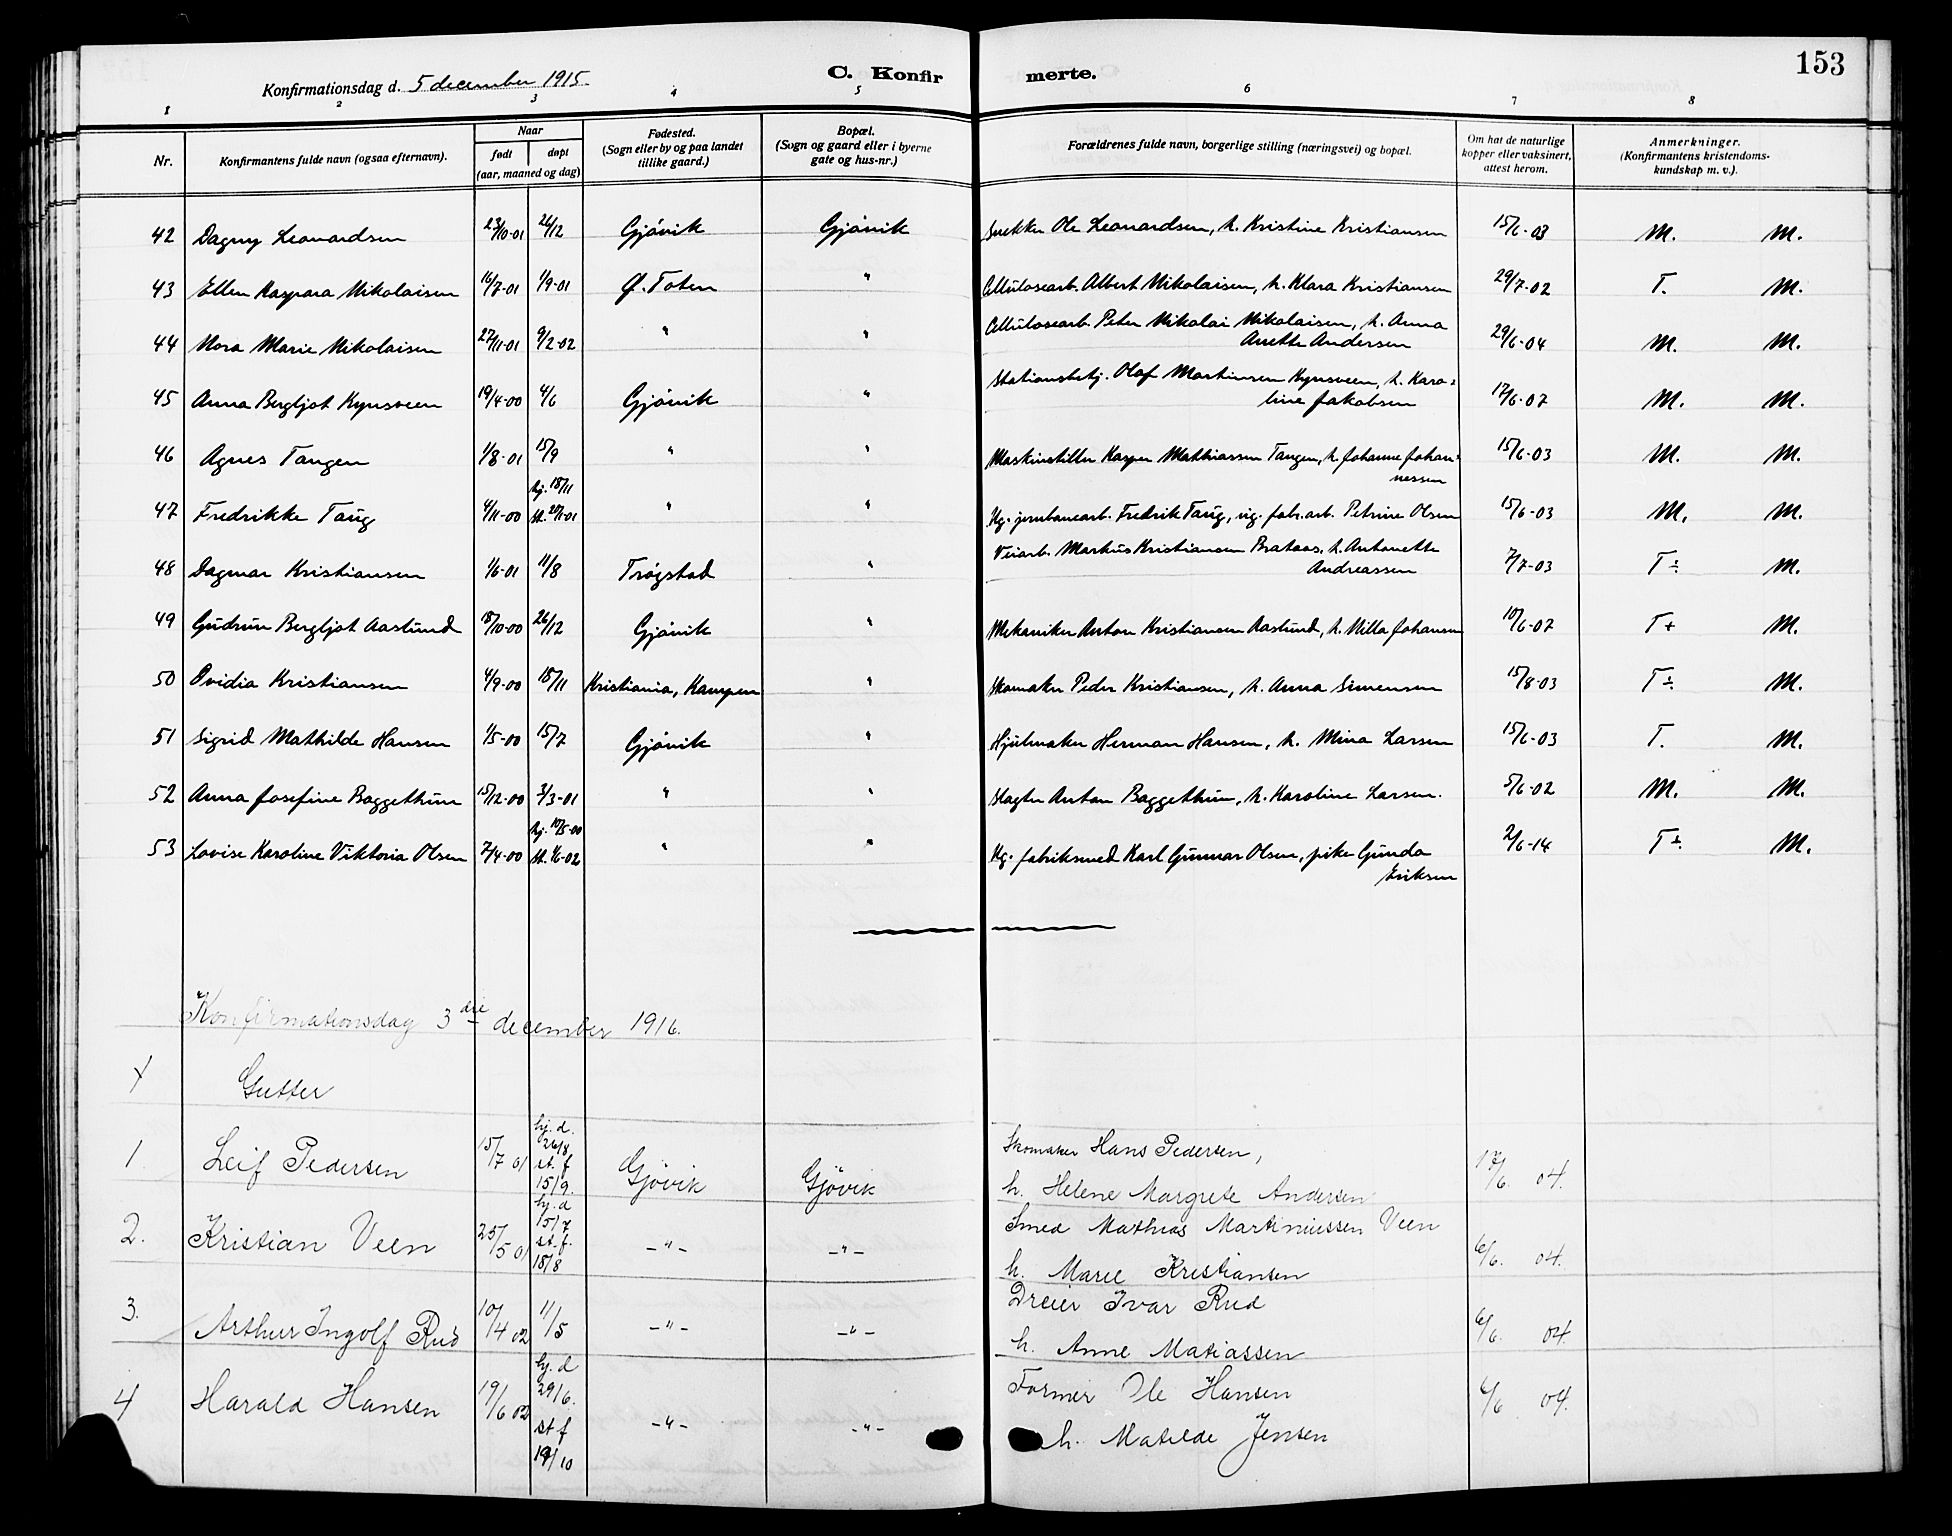 153
Konfirmationsdag d. 5 december 1915.
C. Konfirmerte.
1 2 3 4 5 6 7 8
Nr. | Konfirmantens fulde navn (ogsaa efternavn). | Naar født døpt (aar, maaned og dag) | Fødested. (Sogn eller by og paa landet tillike gaard.) | Bopæl. (Sogn og gaard eller i byerne gate og hus-nr.) | Forældrenes fulde navn, borgerlige stilling (næringsvei) og bopæl. | Om hat de naturlige kopper eller vaksinert, attest herom. | Anmerkninger. (Konfirmantens kristendomskundskap m. v.).
42 Dagny Leonardsen 23/10-01 26/12 Gjövik Gjövik Snekker Ole Leonardsen, h. Kristine Kristiansen 15/6-03 M. M.
43 Ellen Kaspara Nikolaisen 16/7-01 1/9-01 Ø. Toten " Cellulosearb. Albert Nikolaisen, h. Klara Kristiansen 29/7-02 T. M.
44 Nora Marie Nikolaisen 27/11-01 9/2-02 " " Cellulosearb. Peter Nikolai Nikolaisen, h. Anna
Anette Andersen 29/6-04 M. M.
45 Anna Bergljot Kynsveen 19/4-00 4/6 Gjövik " Stationsbetj. Olaf Martinsen Kynsveen, h. Karo-
line Jakobsen 17/6-07 M. M.
46 Agnes Tangen 1/8-01 15/9 " " Maskinstiller Kasper Mathiassen Tangen, h. Johanne Johan-
nessen 15/6-03 M. M.
47 Fredrikke Taug 4/11-00 hj. 18/11 st. 20/1-01 " " Ug. jernbanearb. Fredrik Taug, ug. fabr.arb. Petrine Olsen 15/6-03 M. M.
48 Dagmar Kristiansen 1/6-01 11/8 Trögstad " Veiarb. Markus Kristiansen Brataas, h. Antonette
Andreassen 7/7-03 T÷ M.
49 Gudrun Bergljot Aaslund 18/10-00 26/12 Gjövik " Mekaniker Anton Kristiansen Aaslund, h. Milla Johansen 10/6-07 T+ M.
50 Ovidia Kristiansen 4/9-00 18/11 Kristiania, Kampen " Skomaker Peder Kristiansen, h. Anna Simensen 15/8-03 T÷ M.
51 Sigrid Mathilde Hansen 1/5-00 15/7 Gjövik " Hjulmaker Herman Hansen, h. Mina Larsen 15/6-03 T. M.
52 Anna Josefine Baggethun 15/12-00 3/3-01 " " Slagter Anton Baggethun, h. Karoline Larsen. 5/6-02 M. M.
53 Lovise Karoline Viktoria Olsen 7/4-00 hj. 10/5-00 st. 1/6-02 " " Ug. fabriksmed Karl Gunnar Olsen, pike Gunda
Eriksen 2/6-14 T± M.
Konfirmationsdag 3dje december 1916.
Gutter
1. Leif Pedersen 15/7 01 hj. d. 26/8 st. f 15/9. Gjövik Gjövik Skomaker Hans Pedersen,
h. Helene Margrete Andersen 17/6. 04.
2. Kristian Veen 25/5 01 hj. d 15/7 st. f. 18/8 -"- -"- Smed Mathias Martiniussen Veen
h. Marie Kristiansen 6/6. 04.
3. Arthur Ingolf Rud 10/4 02 11/5 -"- -"- Dreier Ivar Rud
h. Anne Matiassen 6/6. 04.
4 Harald Hansen 19/6 02 hj. d 29/6. st f 19/10 -"- -"- Former Ole Hansen
h. Matilde Jensen 6/6 04.